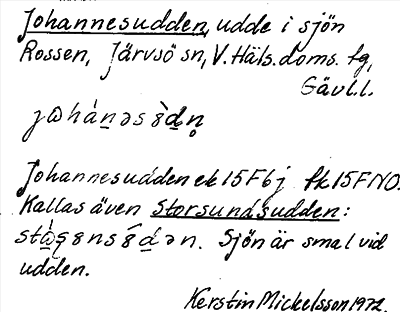 Johannesudden, udde i sjön
Rossen, Järvsö sn, V. Häls. doms. tg,
Gävl.l.
Johannesudden ek 15F6j fk 15F NO.
Kallas även Storsundsudden:
Sjön är smal vid
udden.
Kerstin Mickelsson 1972.